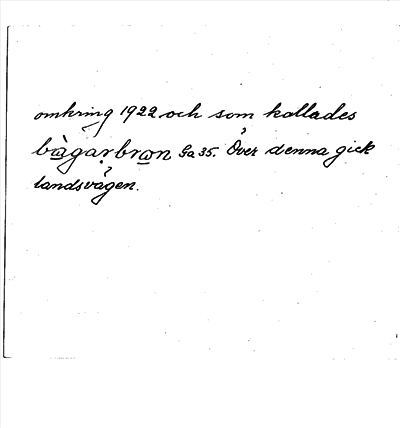 omkring 1922 och som kallades
bàgaṛbron Ga 35. Över denna gick
landsvägen.